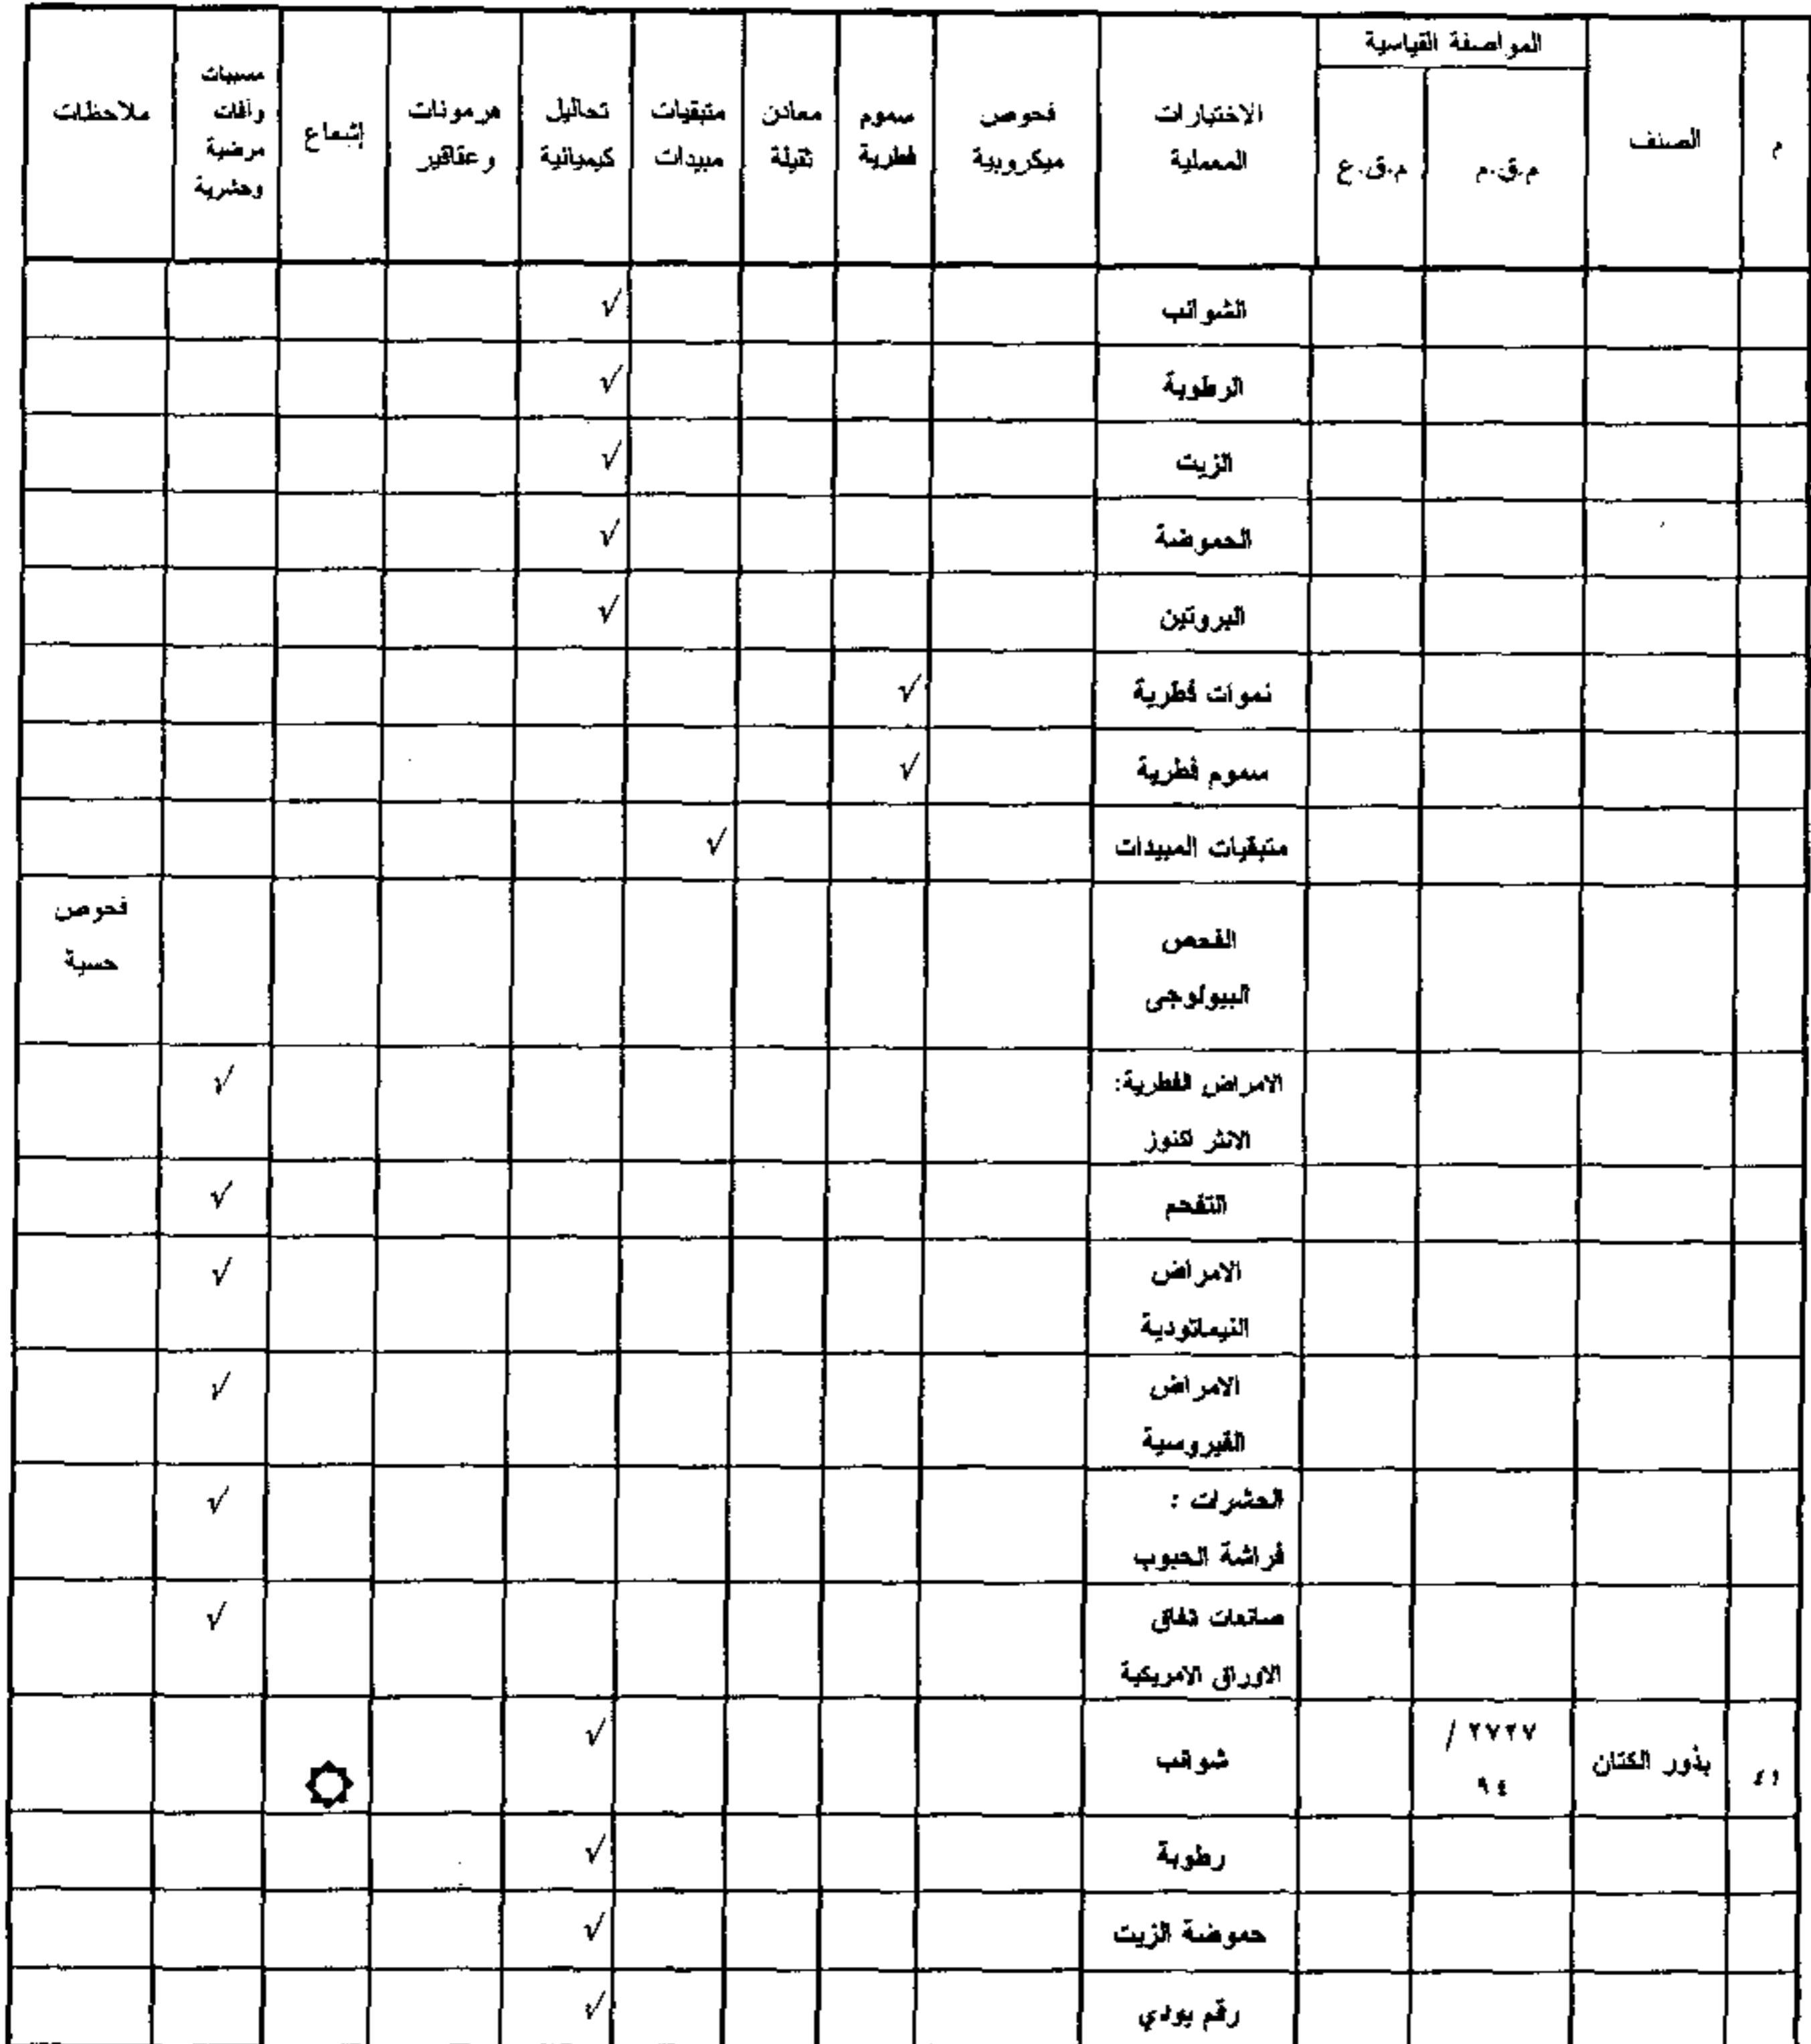 م
الصنف
المواصفة القياسية
م.ق.م
م.ق.ع
الاختبارات
المعملية
فحوص
ميكروبية
سموم
فطرية
معادن
ثقيلة
متبقيات
مبيدات
تحاليل
كيميائية
هرمونات
وعقاقير
إشعاع
مسببات
وآفات
مرضية
وحشرية
ملاحظات
الشوائب √
الرطوبة √
الزيت √
الحموضة √
البروتين √
نموات فطرية √
سموم فطرية √
متبقيات المبيدات √
الفحص
البيولوجى
فحوص
حسية
الامراض الفطرية: √
الانثراكنوز
التفحم √
الامراض √
النيماتودية
الامراض √
الفيروسية
الحشرات : √
فراشة الحبوب
صانعات √
الاوراق الامريكية
بذور الكتان
٢٧٢٧ /
٩٤
شوائب √
رطوبة √
حموضة الزيت √
رقم يودي √